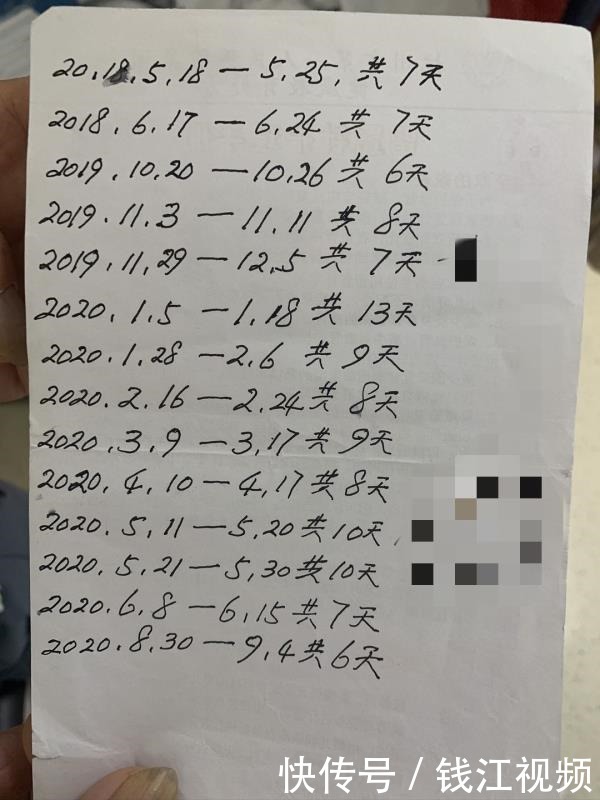 2018.5.18—5.25,共7天
2018.6.17—6.24共7天
2019.10.20—10.26共6天
2019.11.3—11.11共8天
2019.11.29—12.5共7天
2020.1.5—1.18共13天
2020.1.28—2.6共9天
2020.2.16—2.24共8天
2020.3.9—3.17共9天
2020.4.10—4.17共8天
2020.5.11—5.20共10天
2020.5.21—5.30共10天
2020.6.8—6.15共7天
2020.8.30—9.4共6天
快传号/钱江视频